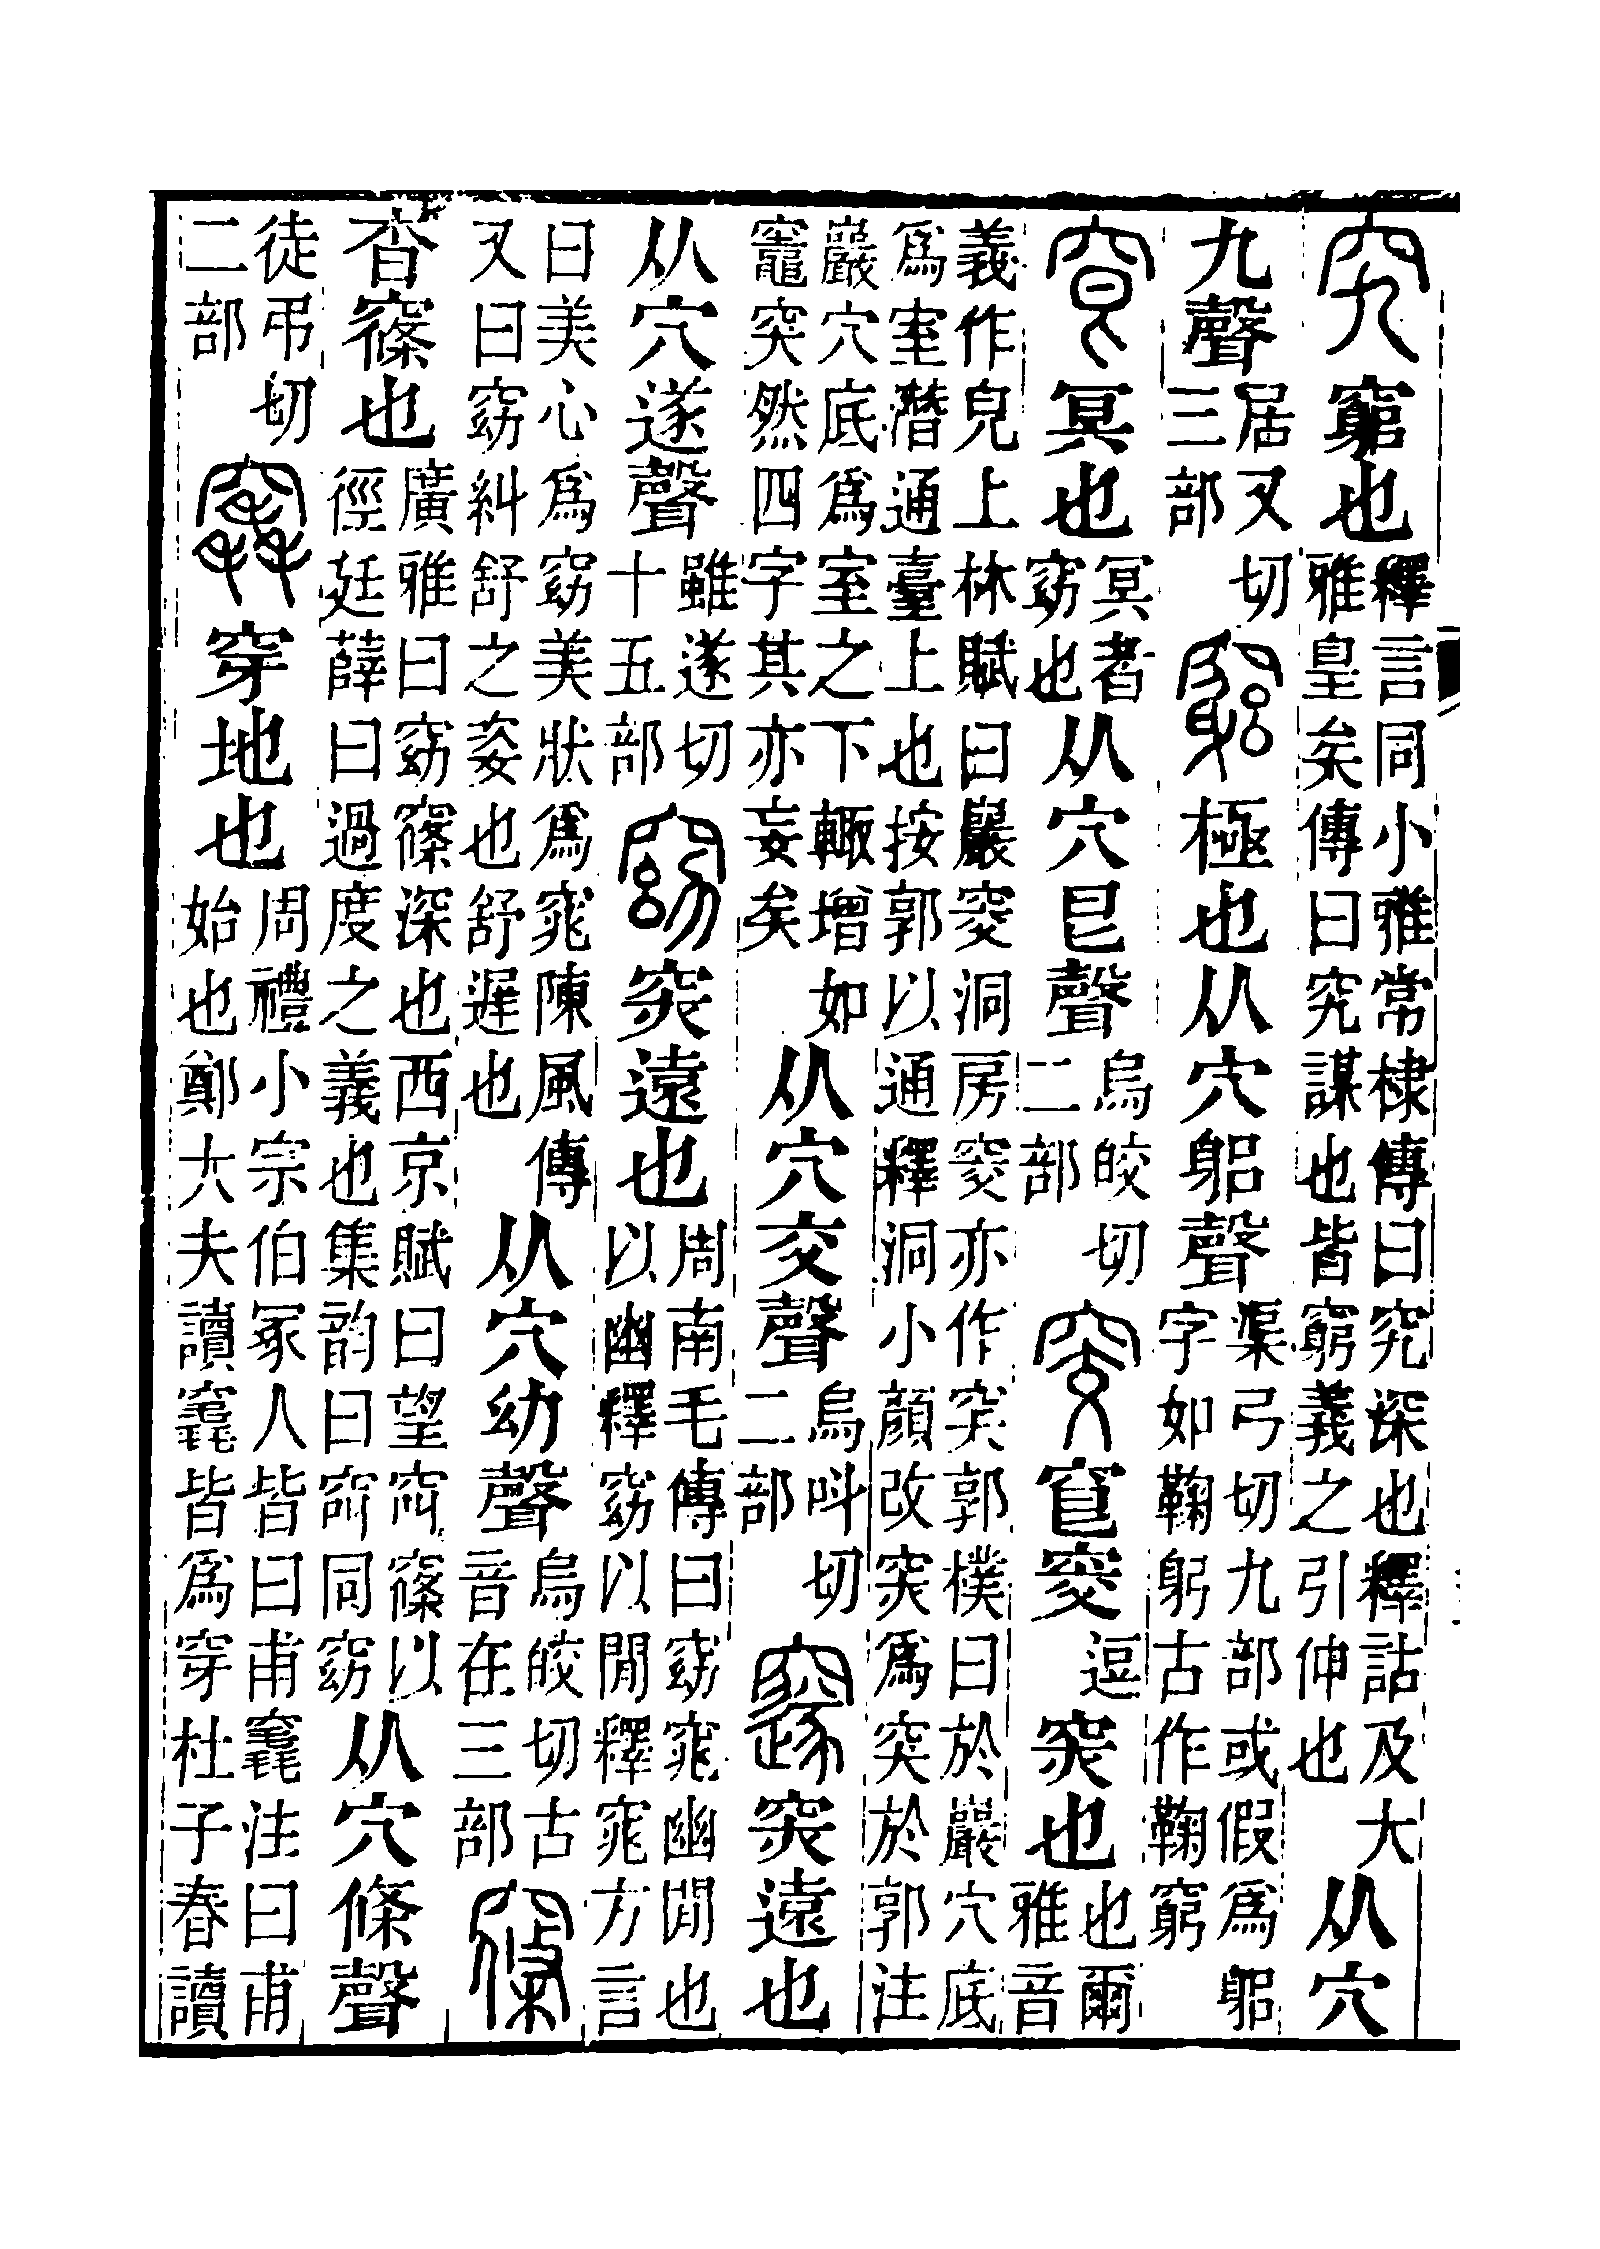 究窮也釋言同小雅常棣傳曰究深也釋詁及大
雅皇矣傳曰究謀也皆窮義之引伸也从穴
九聲居又切
三部竆極也从穴躳聲渠弓切九部或假爲躳
字如鞠躬古作鞠窮
窅冥也冥者
窈也从穴㫐聲烏皎切
二部窔窅窔逗穼也也爾
雅音
義作皃上林賦曰巖窔洞房窔亦作突郭樸曰於巖穴底
爲室潛通臺上也按郭以通釋洞小顏改穼爲突於郭注
巖穴底爲室之下輙增如
竈突然四字其亦妄矣从穴交聲烏呌切
二部𥨧穼遠也
从穴遂聲雖遂切
十五部窈穼遠也周南毛傳曰窈窕幽閒也
以幽釋窈以閒釋窕方言
曰美心爲窈美狀爲窕陳風傳
又曰窈糾舒之姿也舒遲也从穴幼聲烏皎切古
音在三部窱
杳窱也廣雅曰窈窱深也西京賦曰望窱以
徑廷薛曰過度之義也集韵曰同窈从穴條聲
徒弔切
二部竁穿地也周禮小宗伯冢人皆曰甫竁注曰甫
始也鄭大夫讀竁皆爲穿杜子春讀